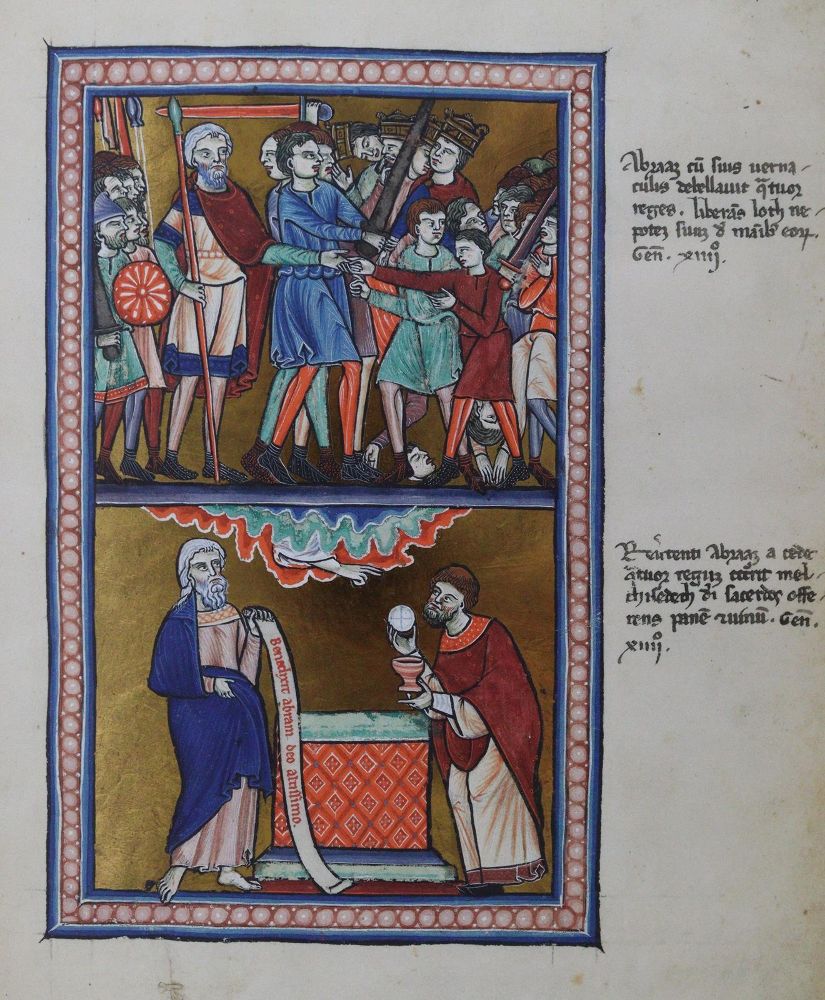 Abraaz cū suis uerna-
culis debellauit q̄tuor
reges. liberās loth ne-
potez suuz d̄ maīb' eorꝝ.
Gen̄. xiiijº.
Reūtenti Abraaz a cede
q̄tuor reguz occ̄rit mel-
chisedech dī sacerdos offe-
rens panē ⁊ uinuꝫ. Gen̄.
xiiijº.
Benedixit abram deo altissimo.